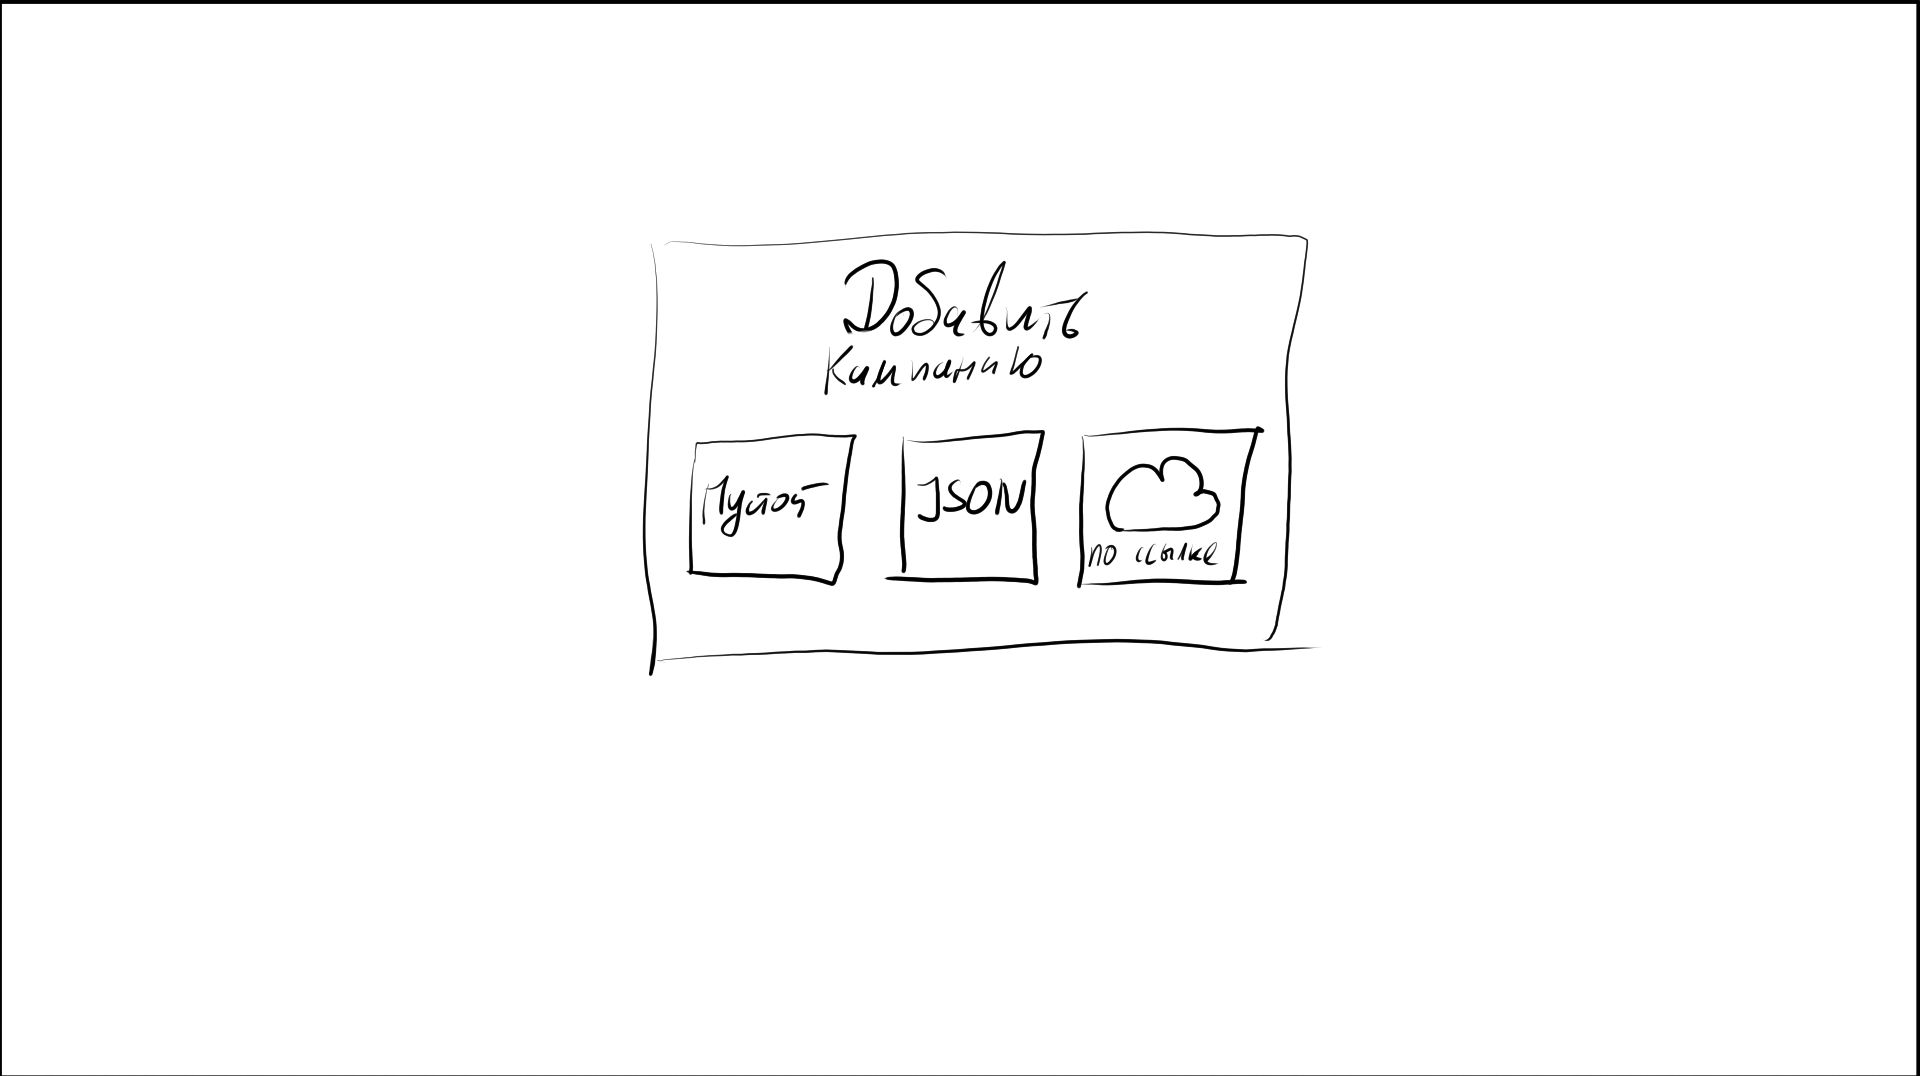 Добавить
Кампанию
Пустой
JSON
по ссылке